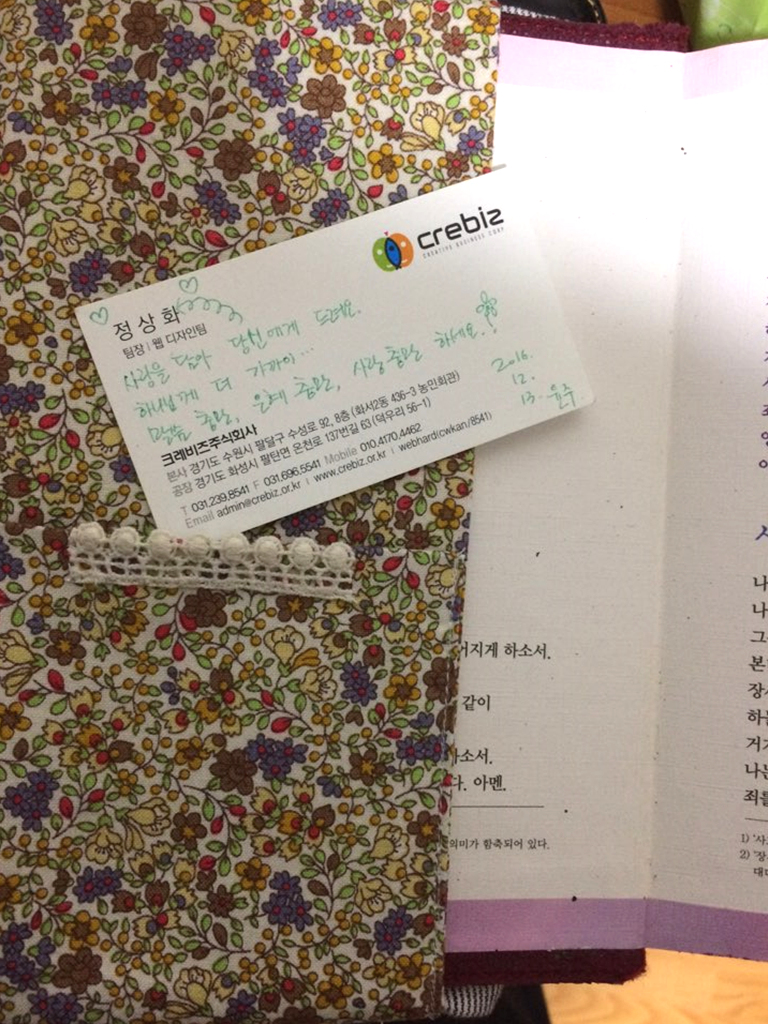 crebiz
CREATIVE BUSINESS CORP
정상화
팀장 | 웹 디자인팀
사랑을 담아 당신에게 드려요.
하나님께 더 가까이...
말씀 충만, 은혜 충만, 사랑 충만 하세요.!
2016.
12.
13. 윤주
크레비즈주식회사
본사 경기도 수원시 팔달구 수성로 92, 8층 (화서2동 436-3 농민회관)
공장 경기도 화성시 팔탄면 온천로 137번길 63 (덕우리 56-1)
T 031.239.8541 F 031.696.5541 Mobile 010.4170.4462
Email admin@crebiz.or.kr | www.crebiz.or.kr | webhard(cwkan/8541)
어지게 하소서.
같이
소서.
다. 아멘.
의미가 함축되어 있다.
나
나
그
본
장
하
거
나는
죄를
1) '사
2) '장
대